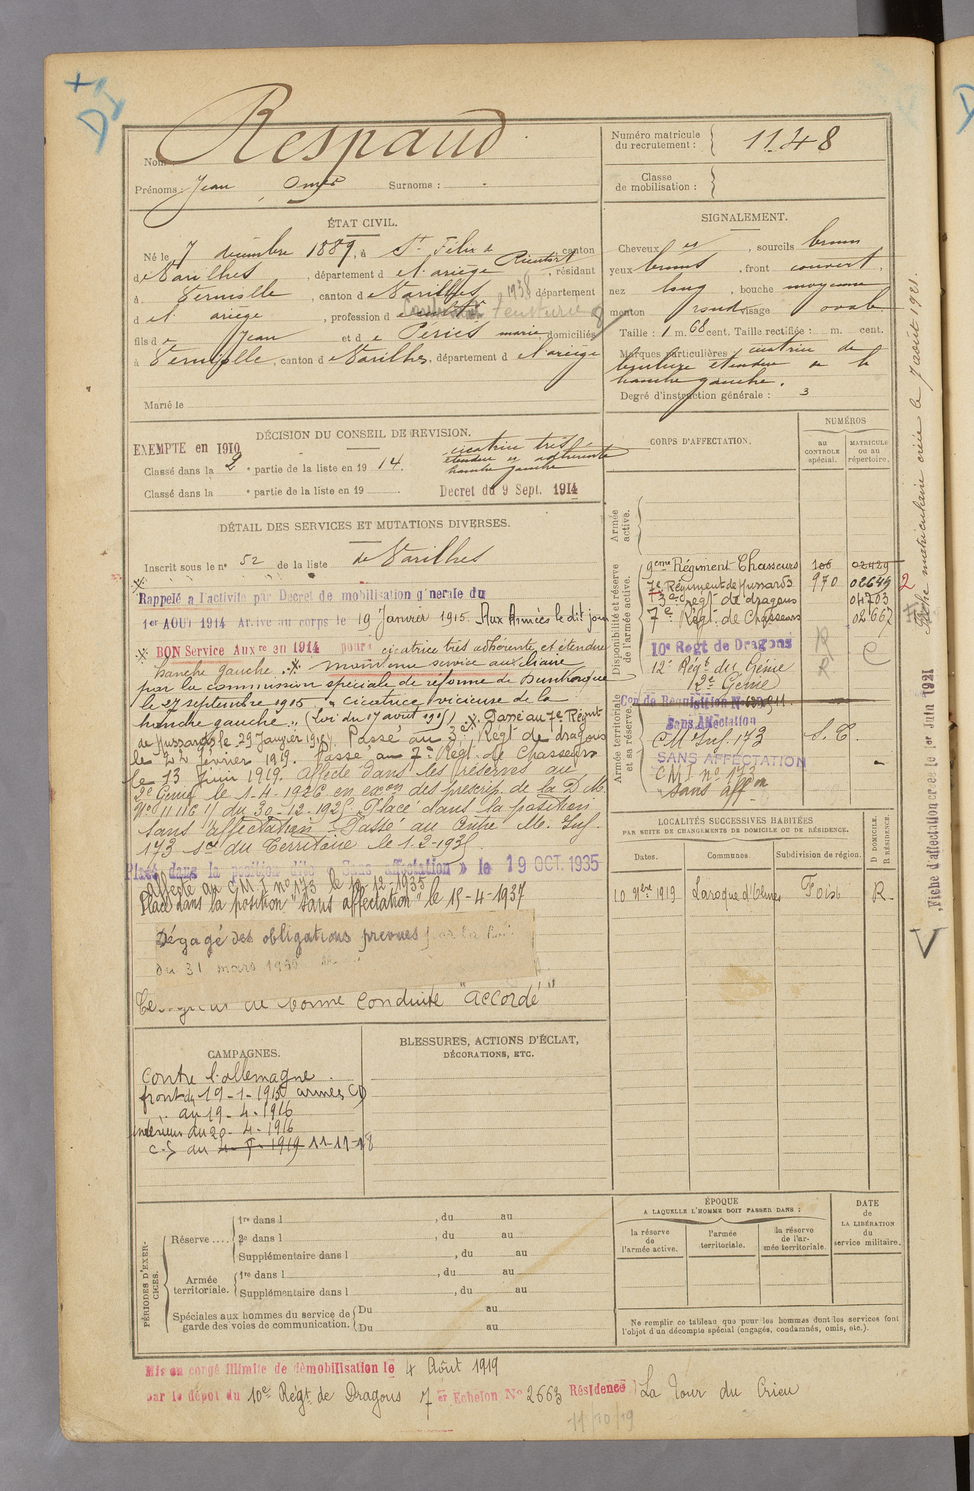 Nom : Respaud
Prénoms : Jean Omer Surnoms :
Numéro matricule du recrutement : 1148
Classe de mobilisation :
ÉTAT CIVIL.
Né le 7 décembre 1889, à St Félix de Rieutort canton
de Varilhes, département de l'ariège, résidant
à Verniolle, canton de Varilhes, 1938 département
de l'ariège, profession de Teinturier
fils de Jean et de Peries marie domiciliés
à Verniolle, canton de Varilhes, département de l'ariège
Marié le
SIGNALEMENT.
Cheveux et, sourcils bruns
yeux bruns, front couvert,
nez long, bouche moyenne
menton rond visage ovale
Taille : 1 m. 68 cent. Taille rectifiée : m. cent.
Marques particulières cicatrice de
brulure etendue de la
hanche gauche.
Degré d'instruction générale : 3
DÉCISION DU CONSEIL DE REVISION.
EXEMPTE en 1910
Classé dans la 2e partie de la liste en 1914.
cicatrice tres
etendue et adherente
hanche gauche
Classé dans la e partie de la liste en 19
Decret du 9 Sept. 1914
DÉTAIL DES SERVICES ET MUTATIONS DIVERSES.
Inscrit sous le no 52 de la liste de Varilhes
Rappelé a l'activité par Decret de mobilisation générale du
1er AOUT 1914 Arrivé au corps le 19 Janvier 1915. Aux Armées le dit jour
BON Service Auxre en 1914 pour cicatrice très adhérente et étendue
hanche gauche. maintenu service auxiliaire
par la commission spéciale de réforme de Dunkerque
le 27 septembre 1915 " cicatrice vicieuse de la
hanche gauche " (loi du 17 août 1915) Passé au 7e Régnt
de hussards le 29 Janvier 1916. Passé au 3e Regt de dragons
le 22 février 1919. Passé au 7e Regt de Chasseurs
le 13 Juin 1919. Affecté dans les réserves au
2e Génie le 1-4-1926 en exon des prescrip. de la D.M.
du 30-12-1925 Placé dans la position
sans affectation Passé au Centre M. Inf.
173 son du Territoire le 1-2-193
Placé dans la position dite « Sans affectation » le 19 OCT. 1935
affecté au CMI no 173 le 12-1935
Placé dans la position "sans affectation" le 15-4-1937
Dégagé des obligations prévues par la
du 31 mars 19
de bonne conduite "accordé"
CORPS D'AFFECTATION.
NUMÉROS
AU CONTRÔLE spécial.
MATRICULE OU AU RÉPERTOIRE.
Armée active.
Disponibilité et réserve de l'armée active.
9eme Régiment Chasseurs 106 02429
7e Régiment de Hussards 970 02649 2
3e regt de dragons 04703
7e Régt de Chasseurs 02667
10e Regt de Dragons
12e Régt du Génie
2e Génie
Armée territoriale et sa réserve.
Con de Requisition No
Sans Affectation
CM Inf. 173 S. C.
SANS AFFECTATION
CMI no 173
Sans affon
LOCALITÉS SUCCESSIVES HABITÉES
PAR SUITE DE CHANGEMENTS DE DOMICILE OU DE RÉSIDENCE.
Dates. Communes. Subdivision de région. D DOMICILE. R RÉSIDENCE.
10 9bre 1919 Laroque d'Olmes Foix R.
Fiche matriculaire créée le 7 août 1921.
Fiche d'affectation créée le 1er Juin 1921
CAMPAGNES.
Contre l'allemagne.
front du 19-1-1915 armées CD
au 19-4-1916
intérieur du 20-4-1916
C.S au 11-11-18
BLESSURES, ACTIONS D'ÉCLAT,
DÉCORATIONS, ETC.
PÉRIODES D'EXERCICES.
Réserve....
1re dans l , du au
2e dans l , du au
Supplémentaire dans l , du au
Armée territoriale.
1re dans l , du au
Supplémentaire dans l , du au
Spéciales aux hommes du service de garde des voies de communication.
Du au
Du au
ÉPOQUE
A LAQUELLE L'HOMME DOIT PASSER DANS :
la réserve de l'armée active.
l'armée territoriale.
la réserve de l'armée territoriale.
DATE de LA LIBÉRATION du service militaire.
Ne remplir ce tableau que pour les hommes dont les services font
l'objet d'un décompte spécial (engagés, condamnés, omis, etc.).
Mis en congé illimité de démobilisation le 4 Août 1919
par le dépôt du 10e Régt de Dragons 7er Echelon No 2663 Résidence La Tour du Crieu
11/10/19